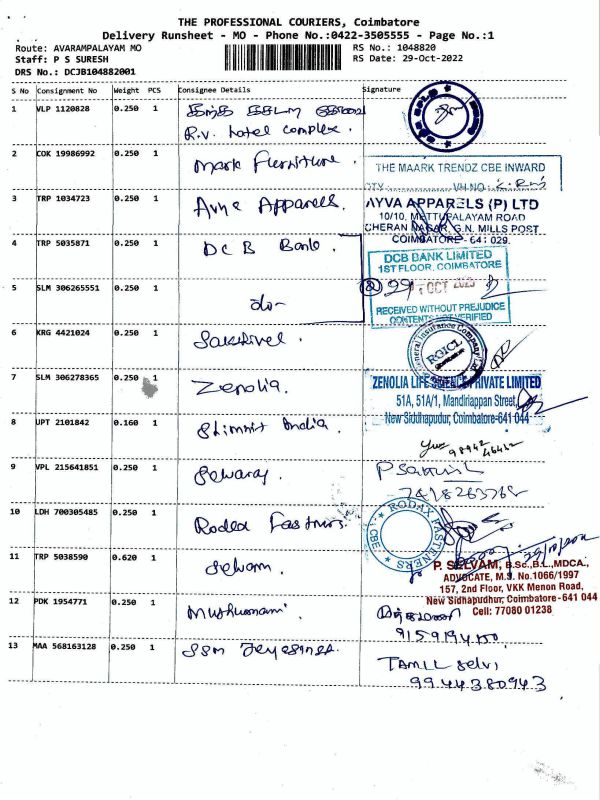 THE PROFESSIONAL COURIERS, Coimbatore
Delivery Runsheet - MO - Phone No.:0422-3505555 - Page No.:1
Route: AVARAMPALAYAM MO
RS No.: 1048820
Staff: P S SURESH
RS Date: 29-Oct-2022
DRS No.: DCJB104882001
S No Consignment No Weight PCS Consignee Details Signature
1 VLP 1120828 0.250 1
R.V. hotel complex.
2 COK 19986992 0.250 1 Mark Furniture.
THE MAARK TRENDZ CBE INWARD
QTY VH NO:
3 TRP 1034723 0.250 1 Apparels.
AYVA APPARELS (P) LTD
10/10, METTUPALAYAM ROAD
CHERAN NAGAR, G.N. MILLS POST
COIMBATORE- 641 029.
4 TRP 5035871 0.250 1 DCB Bank.
DCB BANK LIMITED
1ST FLOOR, COIMBATORE
OCT
RECEIVED WITHOUT PREJUDICE
CONTENTS NOT VERIFIED
5 SLM 306265551 0.250 1 do-
6 KRG 4421024 0.250 1 Sakthivel.
General Insurance Company
7 SLM 306278365 0.250 1 Zenolia.
ZENOLIA LIFE SCIENCE PRIVATE LIMITED
51A, 51A/1, Mandiriappan Street,
New Siddhapudur, Coimbatore-641 044
8 UPT 2101842 0.160 1 India.
98942
9 VPL 215641851 0.250 1 Selvaraj.
10 LDH 700305485 0.250 1
RODAX FASTENERS
CBE
11 TRP 5038590 0.620 1 Selvam.
P. SELVAM, B.Sc.,B.L.,MDCA.,
ADVOCATE, M.S. No.1066/1997
157, 2nd Floor, VKK Menon Road,
New Sidhapudhur, Coimbatore-641 044
Cell: 77080 01238
12 PDK 1954771 0.250 1 Muthusami.
13 MAA 568163128 0.250 1 SSM
TAMIL Selvi
9944380943